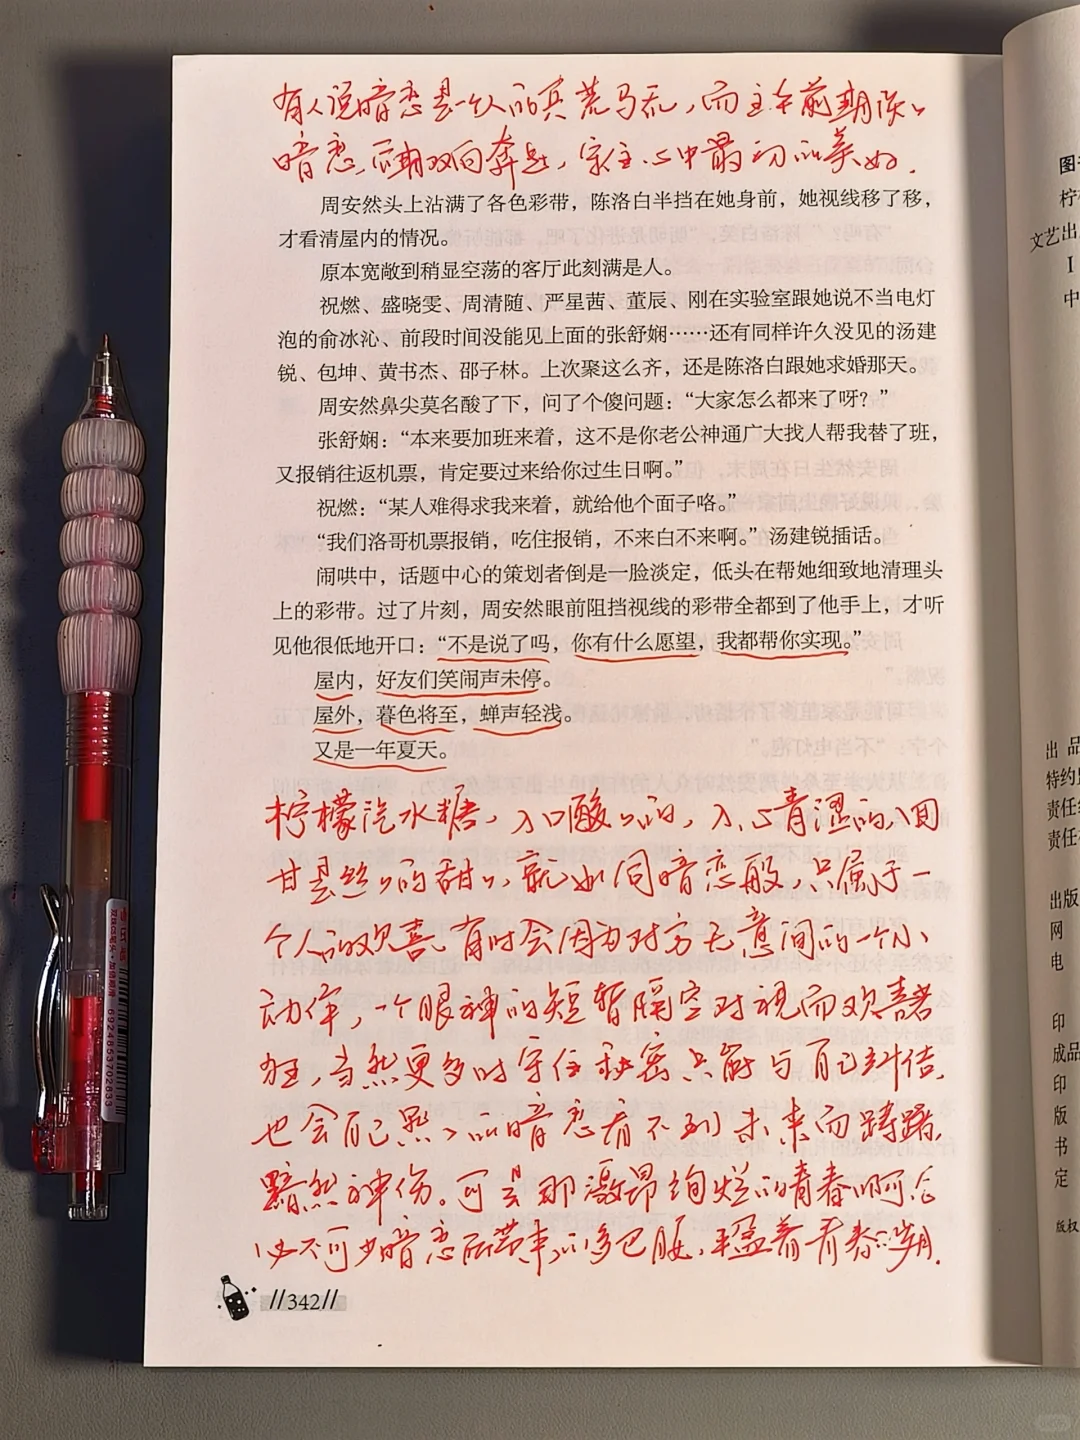 有人说暗恋是一个人的兵荒马乱，而主午前期淡淡
暗恋，后期双向奔赴，宋主心中最初的美好．
周安然头上沾满了各色彩带，陈洛白半挡在她身前，她视线移了移，
才看清屋内的情况。
原本宽敞到稍显空荡的客厅此刻满是人。
祝燃、盛晓雯、周清随、严星茜、董辰、刚在实验室跟她说不当电灯
泡的俞冰沁、前段时间没能见上面的张舒娴……还有同样许久没见的汤建
锐、包坤、黄书杰、邵子林。上次聚这么齐，还是陈洛白跟她求婚那天。
周安然鼻尖莫名酸了下，问了个傻问题：“大家怎么都来了呀？”
张舒娴：“本来要加班来着，这不是你老公神通广大找人帮我替了班，
又报销往返机票，肯定要过来给你过生日啊。”
祝燃：“某人难得求我来着，就给他个面子咯。”
“我们洛哥机票报销，吃住报销，不来白不来啊。”汤建锐插话。
闹哄中，话题中心的策划者倒是一脸淡定，低头在帮她细致地清理头
上的彩带。过了片刻，周安然眼前阻挡视线的彩带全都到了他手上，才听
见他很低地开口：“不是说了吗，你有什么愿望，我都帮你实现。”
屋内，好友们笑闹声未停。
屋外，暮色将至，蝉声轻浅。
又是一年夏天。
柠檬汽水糖，入口酸的，入心青涩的，回
甘是丝丝的甜，就如同暗恋般，只属于一
个人的欢喜，有时会因为对方无意间的一个小
动作，一个眼神的短暂隔空对视而欢喜若
狂，当然更多时守住秘密只能与自己纠结，
也会自己的暗恋看不到未来而踌躇，
黯然神伤。可是那激昂绚烂的青春啊
必不可少暗恋所带来的多巴胺，丰盈着青春岁月．
//342//
图书
柠
文艺出
中
出品
特约
责任
责任
出版
网
电
印
成品
印
版
书
定
版权
6924853702633